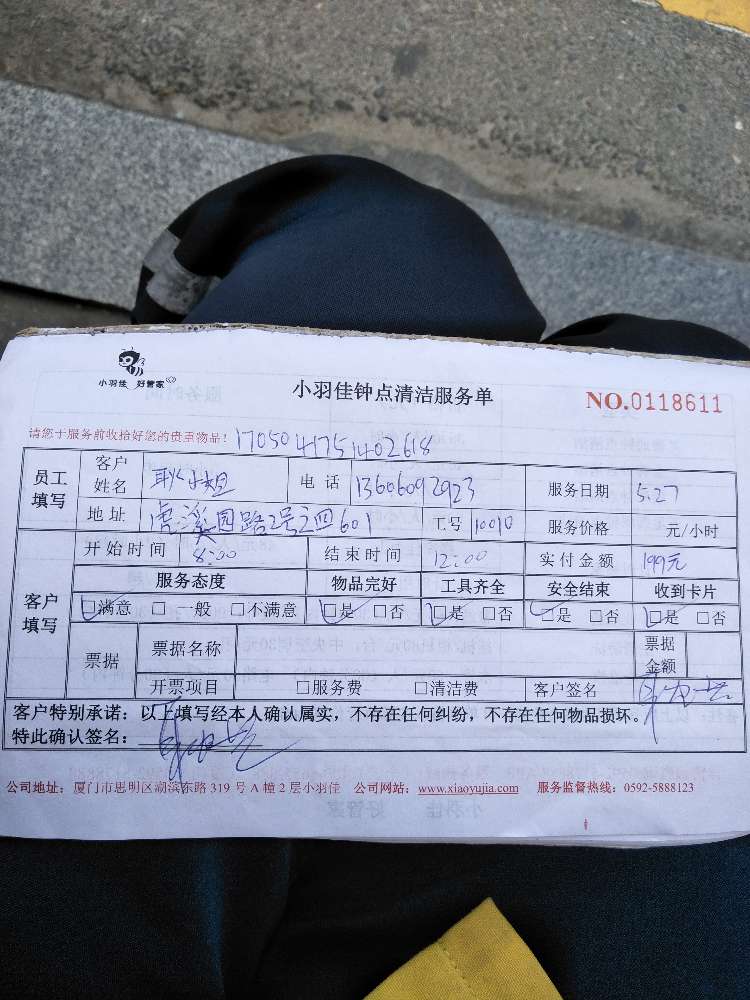 小羽佳 好管家
小羽佳钟点清洁服务单
NO.0118611
请您于服务前收拾好您的贵重物品！
1705041751402618
员工填写 客户姓名 耿小姐 电话 13606092923 服务日期 5.27
地址 虎溪园路2号之四601 工号 10010 服务价格 元/小时
开始时间 8:00 结束时间 12:00 实付金额 199元
客户填写 服务态度 物品完好 工具齐全 安全结束 收到卡片
☑满意 □一般 □不满意 ☑是 □否 ☑是 □否 ☑是 □否 ☑是 □否
票据 票据名称 票据金额
开票项目 □服务费 □清洁费 客户签名
客户特别承诺：以上填写经本人确认属实，不存在任何纠纷，不存在任何物品损坏。
特此确认签名：
公司地址：厦门市思明区湖滨东路 319 号 A 幢 2 层小羽佳 公司网站：www.xiaoyujia.com 服务监督热线：0592-5888123